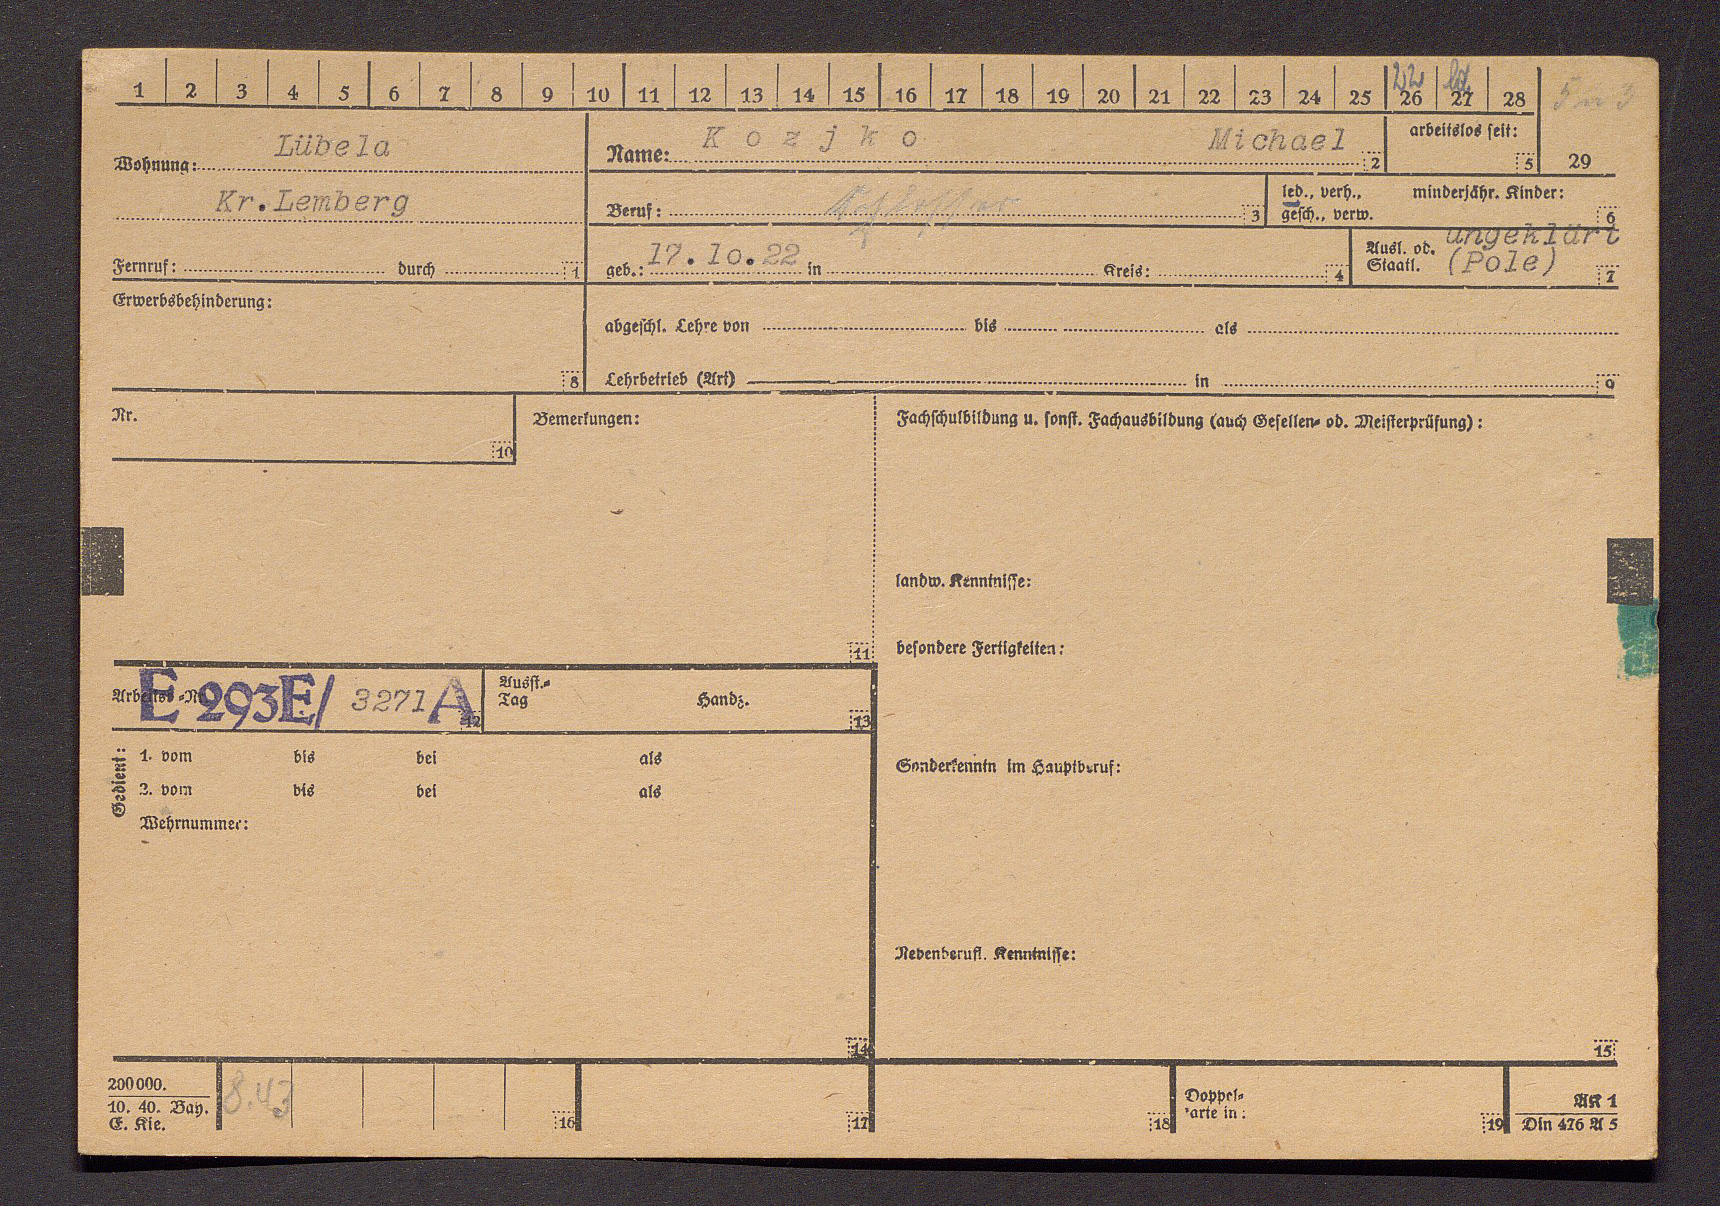 1 2 3 4 5 6 7 8 9 10 11 12 13 14 15 16 17 18 19 20 21 22 23 24 25 26 27 28
22
Wohnung: Lübela
Kr. Lemberg
Fernruf: durch 1
Name: Kozjko Michael 2
arbeitslos seit: 5
29
Beruf: Schlosser 3
led., verh., minderjähr. Kinder:
gesch., verw. 6
geb.: 17.10.22 in Kreis: 4
Ausl. od. ungeklärt
Staatl. (Pole) 7
Erwerbsbehinderung: 8
abgeschl. Lehre von bis als
Lehrbetrieb (Art) in 9
Nr. 10
Bemerkungen: 11
Fachschulbildung u. sonst. Fachausbildung (auch Gesellen- od. Meisterprüfung):
landw. Kenntnisse:
besondere Fertigkeiten:
Sonderkenntn im Hauptberuf:
Nebenberufl. Kenntnisse: 15
Arbeitsb-Nr E 293E/ 3271 A 12
Ausst.-
Tag Handz. 13
Gedient:
1. vom bis bei als
2. vom bis bei als
Wehrnummer:
14
200000.
10. 40. Bay.
E. Kie.
8.43
16 17 18
Doppel-
karte in: 19
AK 1
Din 476 A 5